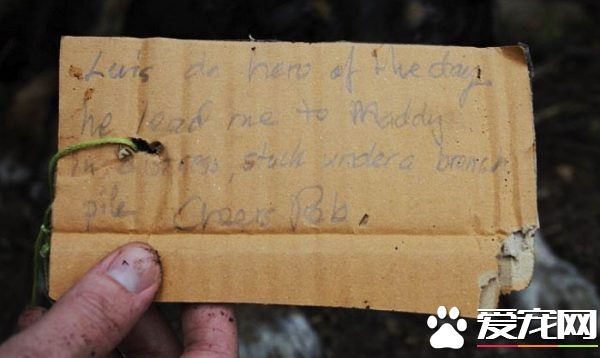 Luis da hero of the day
he lead me to Maddy
in a, stuck under a branch
pile Cheers Rob.
爱宠网